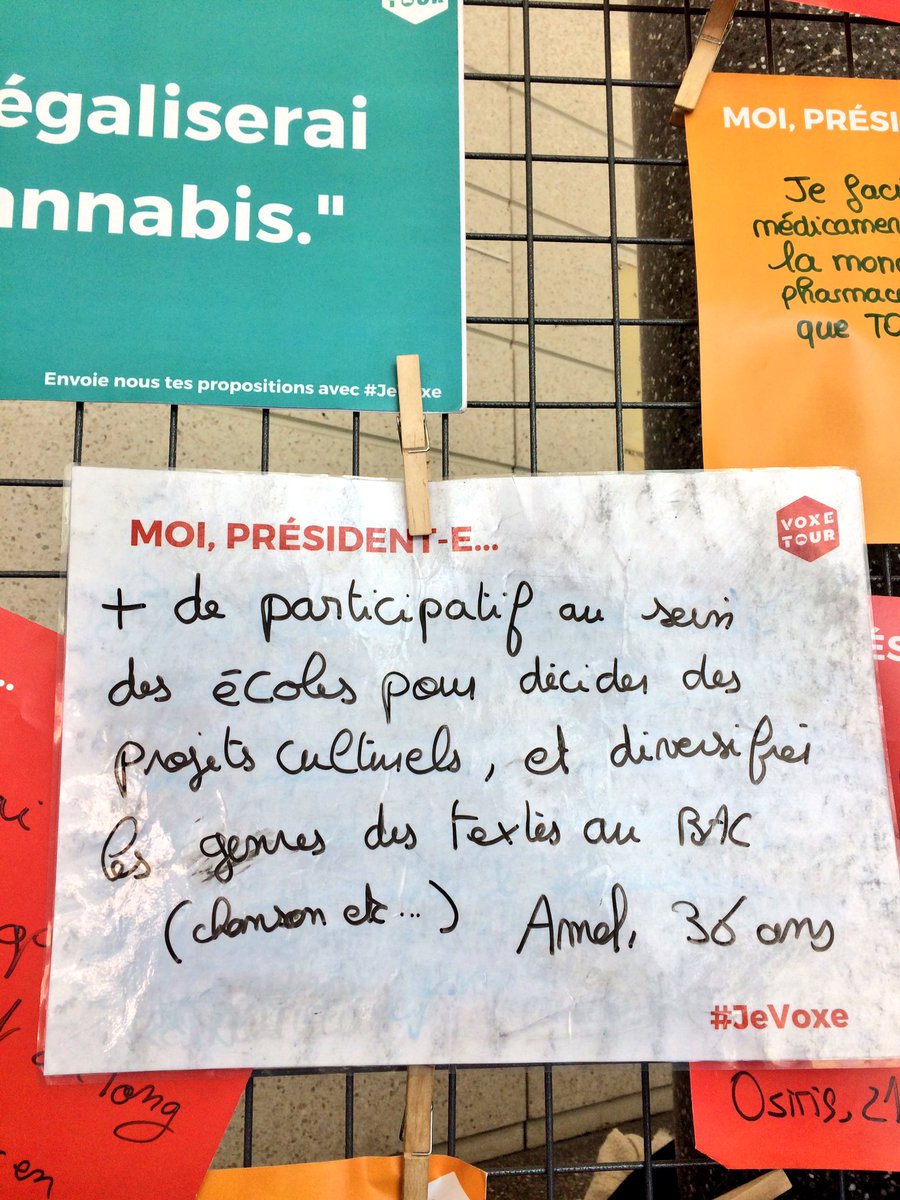 TOUR
égaliserai
annabis."
Envoie nous tes propositions avec #JeVoxe
MOI, PRÉSI
Je faci
médicamen
la mono
pharmac
que TO
MOI, PRÉSIDENT-E...
VOXE
TOUR
+ de participatif au sein
des écoles pour décider des
projets culturels, et diversifier
les genres des textes au BAC
(chanson etc...) Amel, 36 ans
#JeVoxe
...
long
en
ÉS
Osiris, 21